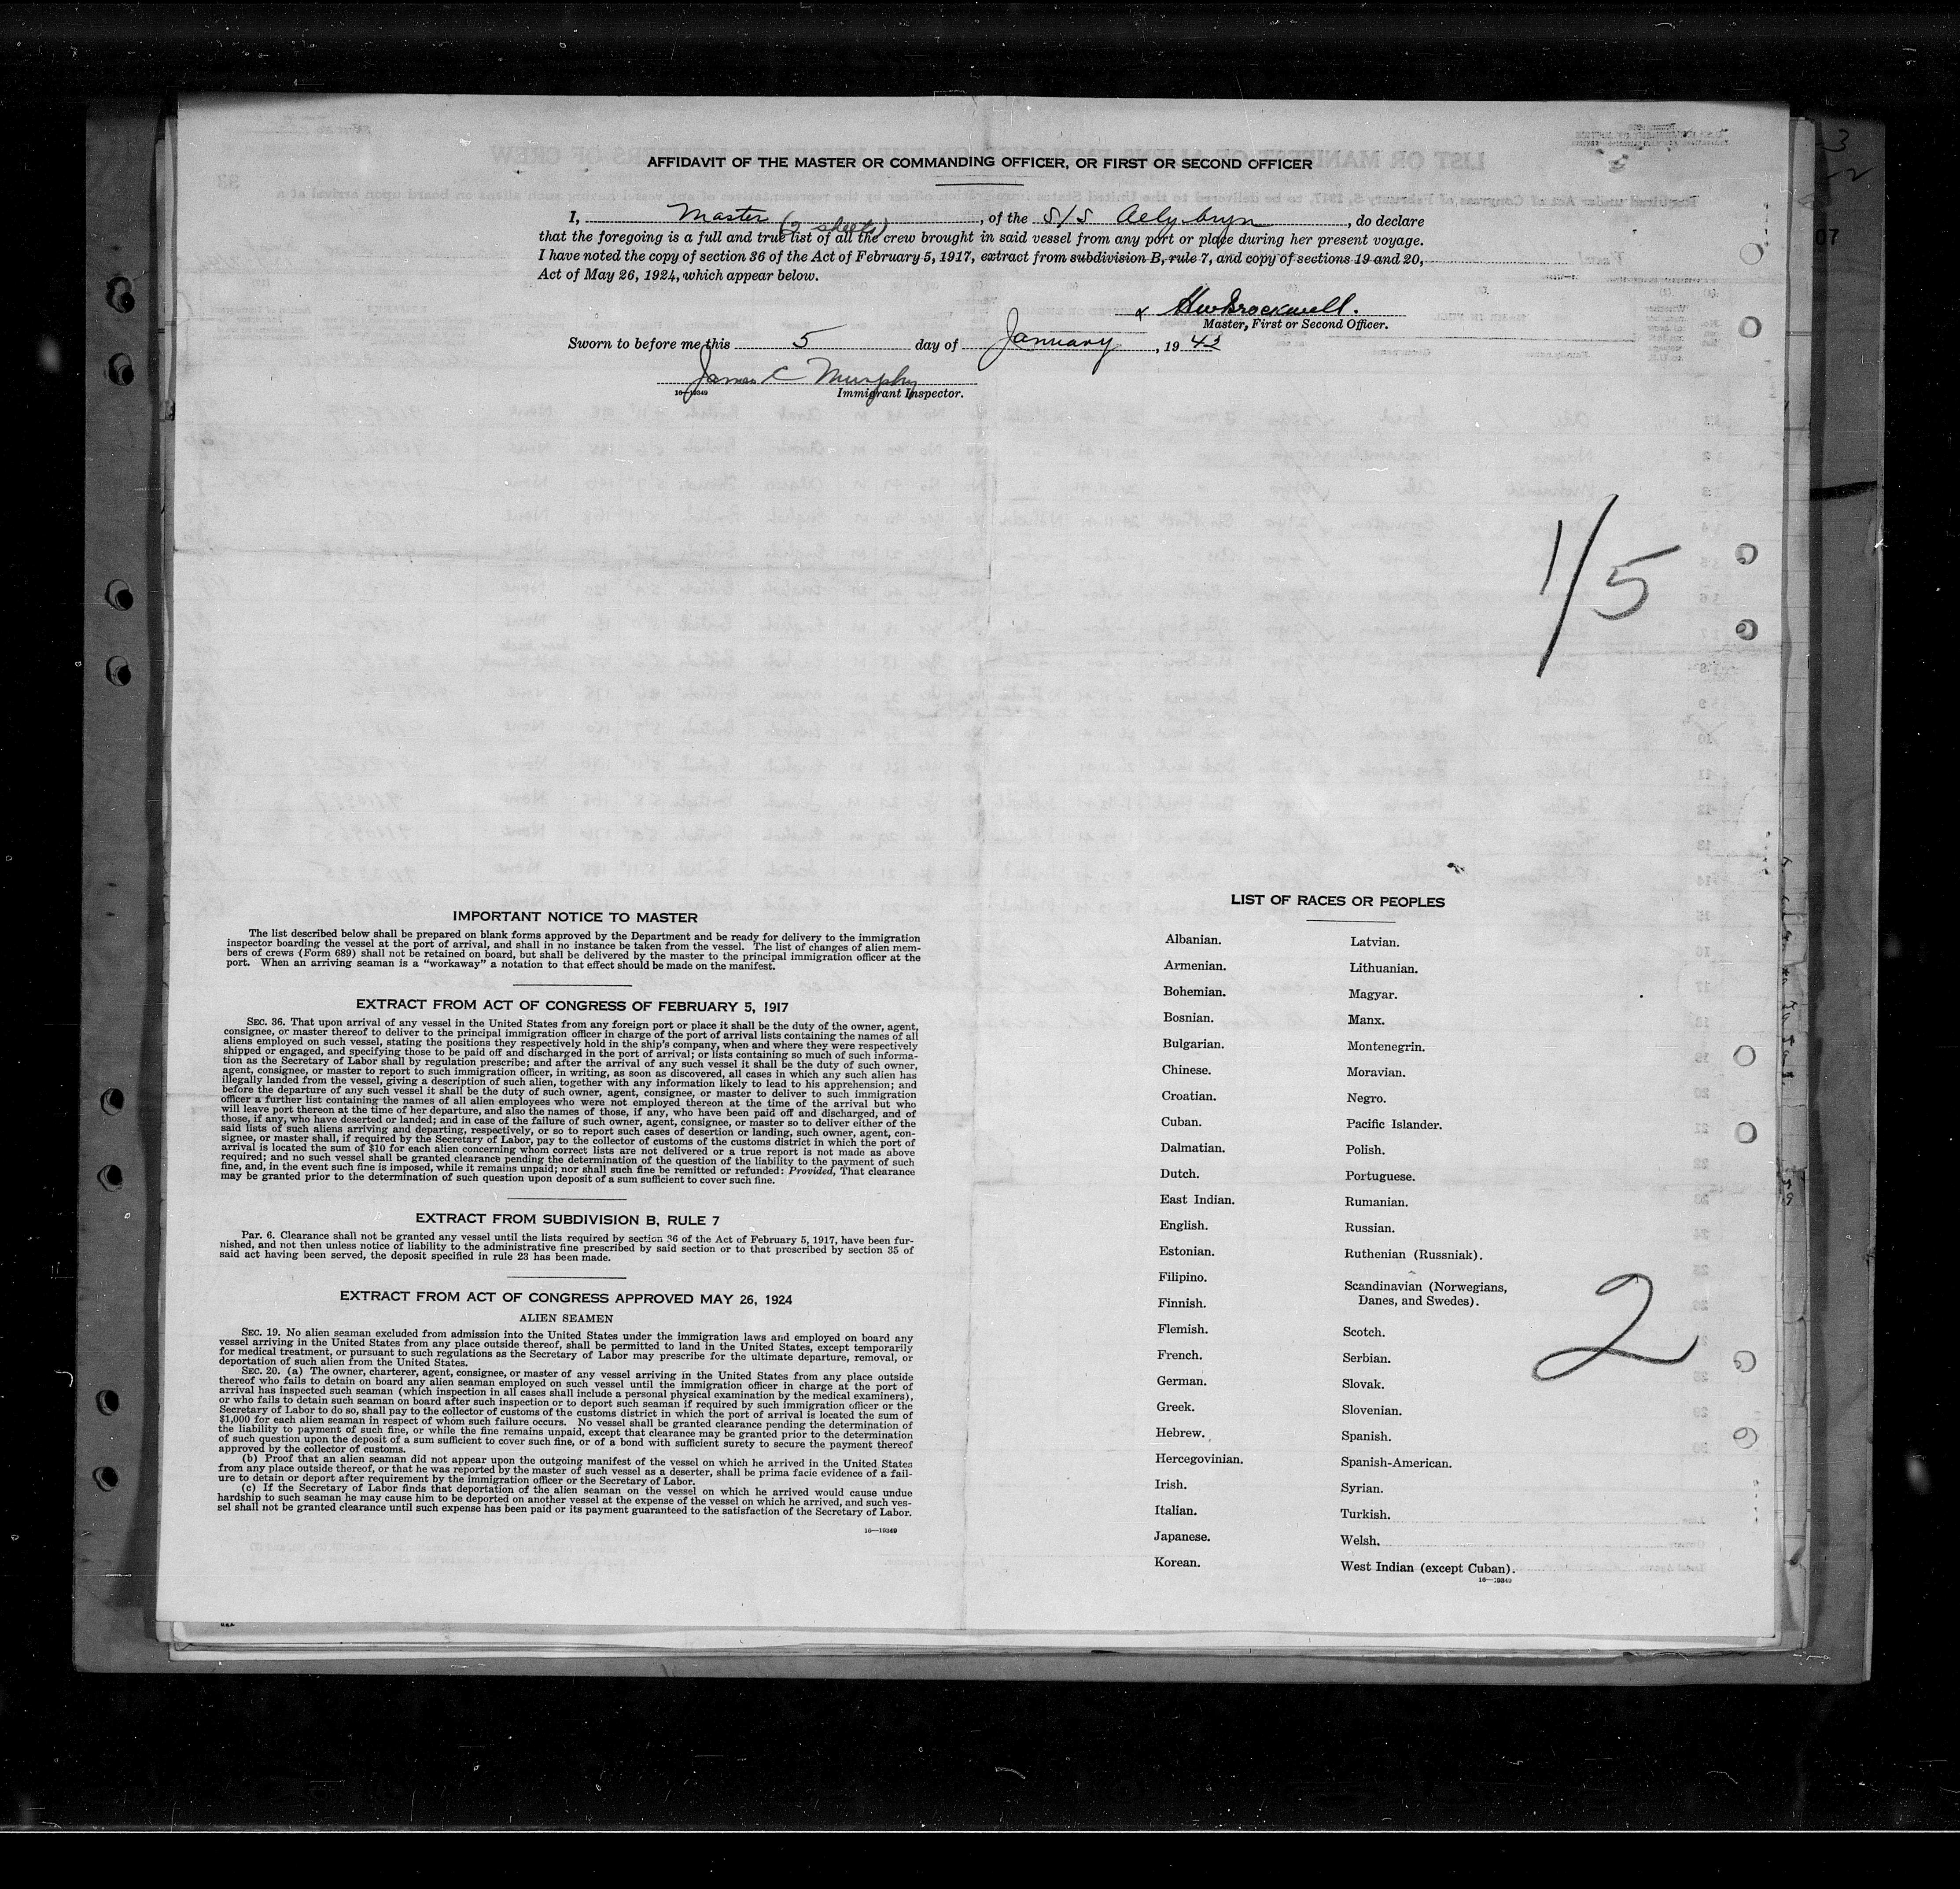 AFFIDAVIT OF THE MASTER OR COMMANDING OFFICER, OR FIRST OR SECOND OFFICER
I, Master (2 sheets), of the S/S Aelybryn, do declare
that the foregoing is a full and true list of all the crew brought in said vessel from any port or place during her present voyage.
I have noted the copy of section 36 of the Act of February 5, 1917, extract from subdivision B, rule 7, and copy of sections 19 and 20,
Act of May 26, 1924, which appear below.
x HwBrockwell.
Master, First or Second Officer.
Sworn to before me this 5 day of January, 19
James C Murphy
16—19349
Immigrant Inspector.
1/5
IMPORTANT NOTICE TO MASTER
The list described below shall be prepared on blank forms approved by the Department and be ready for delivery to the immigration
inspector boarding the vessel at the port of arrival, and shall in no instance be taken from the vessel. The list of changes of alien mem-
bers of crews (Form 689) shall not be retained on board, but shall be delivered by the master to the principal immigration officer at the
port. When an arriving seaman is a “workaway” a notation to that effect should be made on the manifest.
EXTRACT FROM ACT OF CONGRESS OF FEBRUARY 5, 1917
SEC. 36. That upon arrival of any vessel in the United States from any foreign port or place it shall be the duty of the owner, agent,
consignee, or master thereof to deliver to the principal immigration officer in charge of the port of arrival lists containing the names of all
aliens employed on such vessel, stating the positions they respectively hold in the ship's company, when and where they were respectively
shipped or engaged, and specifying those to be paid off and discharged in the port of arrival; or lists containing so much of such informa-
tion as the Secretary of Labor shall by regulation prescribe; and after the arrival of any such vessel it shall be the duty of such owner,
agent, consignee, or master to report to such immigration officer, in writing, as soon as discovered, all cases in which any such alien has
illegally landed from the vessel, giving a description of such alien, together with any information likely to lead to his apprehension; and
before the departure of any such vessel it shall be the duty of such owner, agent, consignee, or master to deliver to such immigration
officer a further list containing the names of all alien employees who were not employed thereon at the time of the arrival but who
will leave port thereon at the time of her departure, and also the names of those, if any, who have been paid off and discharged, and of
those, if any, who have deserted or landed; and in case of the failure of such owner, agent, consignee, or master so to deliver either of the
said lists of such aliens arriving and departing, respectively, or so to report such cases of desertion or landing, such owner, agent, con-
signee, or master shall, if required by the Secretary of Labor, pay to the collector of customs of the customs district in which the port of
arrival is located the sum of $10 for each alien concerning whom correct lists are not delivered or a true report is not made as above
required; and no such vessel shall be granted clearance pending the determination of the question of the liability to the payment of such
fine, and, in the event such fine is imposed, while it remains unpaid; nor shall such fine be remitted or refunded: Provided, That clearance
may be granted prior to the determination of such question upon deposit of a sum sufficient to cover such fine.
EXTRACT FROM SUBDIVISION B, RULE 7
Par. 6. Clearance shall not be granted any vessel until the lists required by section 36 of the Act of February 5, 1917, have been fur-
nished, and not then unless notice of liability to the administrative fine prescribed by said section or to that prescribed by section 35 of
said act having been served, the deposit specified in rule 23 has been made.
EXTRACT FROM ACT OF CONGRESS APPROVED MAY 26, 1924
ALIEN SEAMEN
SEC. 19. No alien seaman excluded from admission into the United States under the immigration laws and employed on board any
vessel arriving in the United States from any place outside thereof, shall be permitted to land in the United States, except temporarily
for medical treatment, or pursuant to such regulations as the Secretary of Labor may prescribe for the ultimate departure, removal, or
deportation of such alien from the United States.
SEC. 20. (a) The owner, charterer, agent, consignee, or master of any vessel arriving in the United States from any place outside
thereof who fails to detain on board any alien seaman employed on such vessel until the immigration officer in charge at the port of
arrival has inspected such seaman (which inspection in all cases shall include a personal physical examination by the medical examiners),
or who fails to detain such seaman on board after such inspection or to deport such seaman if required by such immigration officer or the
Secretary of Labor to do so, shall pay to the collector of customs of the customs district in which the port of arrival is located the sum of
$1,000 for each alien seaman in respect of whom such failure occurs. No vessel shall be granted clearance pending the determination of
the liability to payment of such fine, or while the fine remains unpaid, except that clearance may be granted prior to the determination
of such question upon the deposit of a sum sufficient to cover such fine, or of a bond with sufficient surety to secure the payment thereof
approved by the collector of customs.
(b) Proof that an alien seaman did not appear upon the outgoing manifest of the vessel on which he arrived in the United States
from any place outside thereof, or that he was reported by the master of such vessel as a deserter, shall be prima facie evidence of a fail-
ure to detain or deport after requirement by the immigration officer or the Secretary of Labor.
(c) If the Secretary of Labor finds that deportation of the alien seaman on the vessel on which he arrived would cause undue
hardship to such seaman he may cause him to be deported on another vessel at the expense of the vessel on which he arrived, and such ves-
sel shall not be granted clearance until such expense has been paid or its payment guaranteed to the satisfaction of the Secretary of Labor.
16—19349
LIST OF RACES OR PEOPLES
Albanian.
Armenian.
Bohemian.
Bosnian.
Bulgarian.
Chinese.
Croatian.
Cuban.
Dalmatian.
Dutch.
East Indian.
English.
Estonian.
Filipino.
Finnish.
Flemish.
French.
German.
Greek.
Hebrew.
Hercegovinian.
Irish.
Italian.
Japanese.
Korean.
Latvian.
Lithuanian.
Magyar.
Manx.
Montenegrin.
Moravian.
Negro.
Pacific Islander.
Polish.
Portuguese.
Rumanian.
Russian.
Ruthenian (Russniak).
Scandinavian (Norwegians,
Danes, and Swedes).
Scotch.
Serbian.
Slovak.
Slovenian.
Spanish.
Spanish-American.
Syrian.
Turkish.
Welsh.
West Indian (except Cuban).
16—19349
2
07